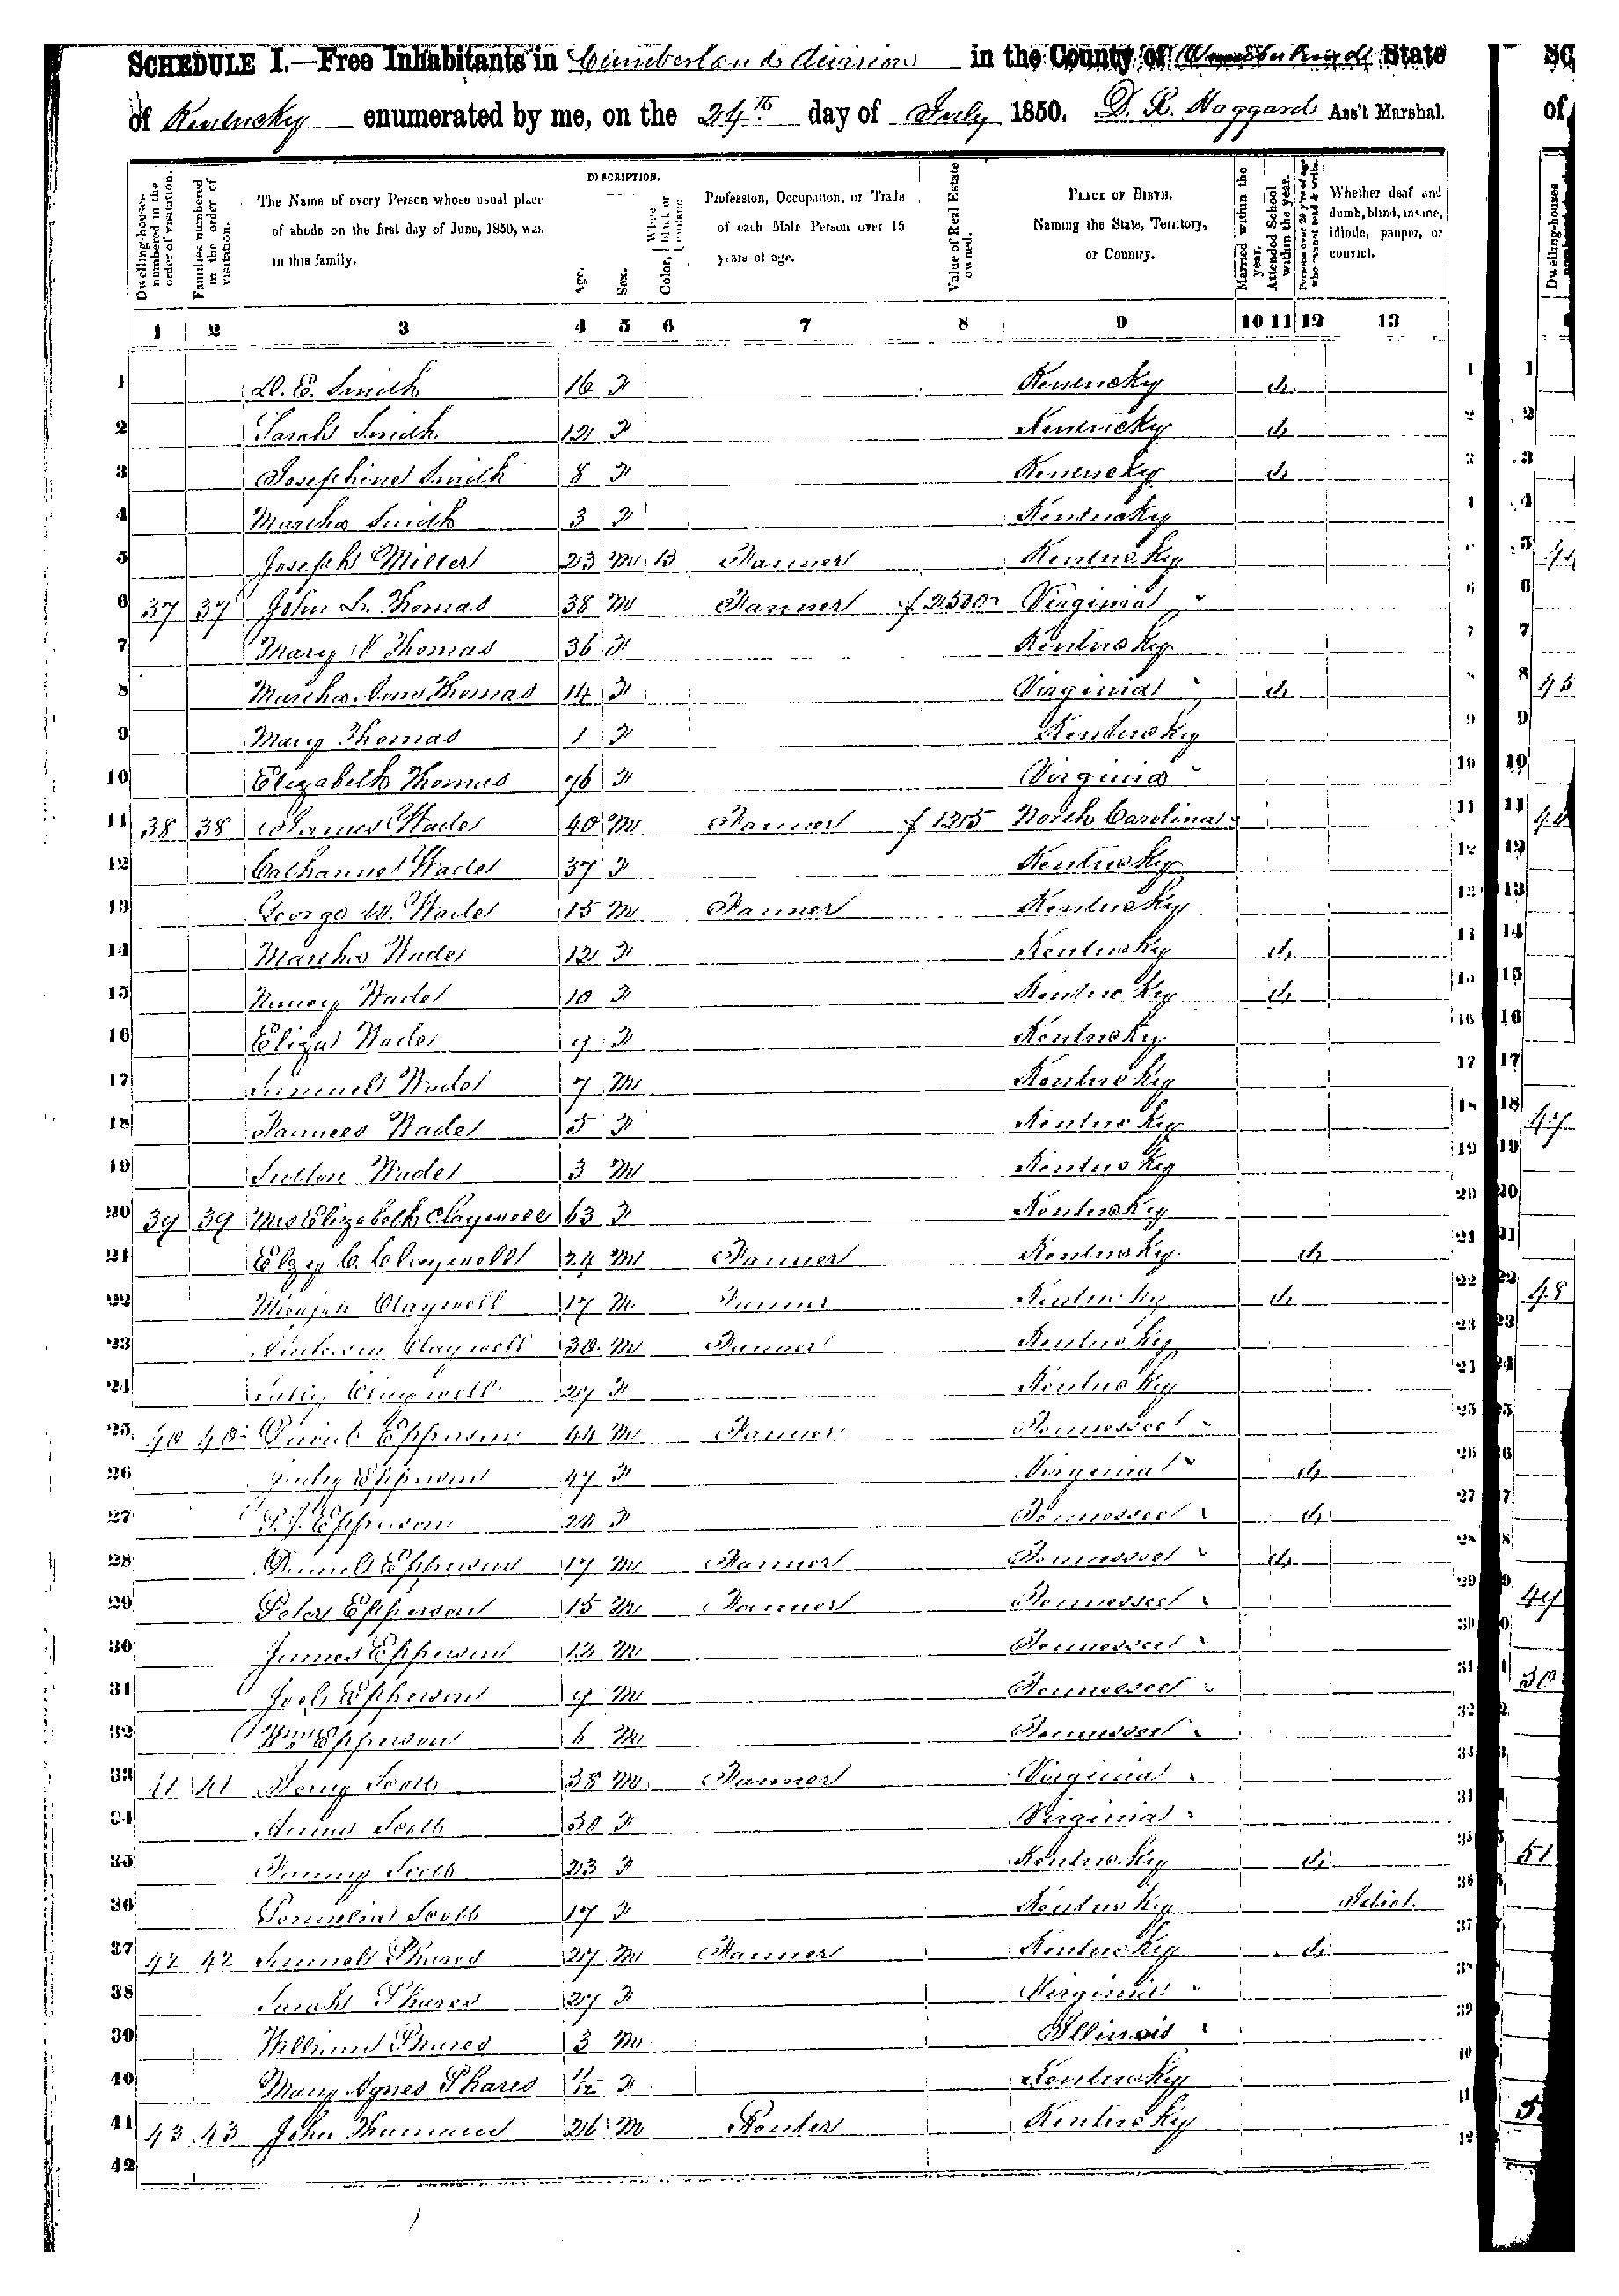 SCHEDULE I.—Free Inhabitants in Cumberland division in the County of Cumberland State
of Kentucky enumerated by me, on the 24th day of July 1850. D. R. Haggard Ass't Marshal.
Dwelling-houses numbered in the order of visitation.
Families numbered in the order of visitation.
The Name of every Person whose usual place of abode on the first day of June, 1850, was in this family.
DESCRIPTION.
Age.
Sex.
Color, White, black or mulatto
Profession, Occupation, or Trade of each Male Person over 15 years of age.
Value of Real Estate owned.
PLACE OF BIRTH. Naming the State, Territory, or Country.
Married within the year.
Attended School within the year.
Persons over 20 y'rs of age who cannot read & write.
Whether deaf and dumb, blind, insane, idiotic, pauper, or convict.
1 2 3 4 5 6 7 8 9 10 11 12 13
1 E. Smith 16 F Kentucky 1
2 Sarah Smith 12 F Kentucky 2
3 Josephine Smith 8 F Kentucky 3
4 Martha Smith 3 F Kentucky 4
5 Joseph Miller 23 M B Farmer Kentucky
6 37 37 John L. Thomas 38 M Farmer 2500 Virginia 6
7 Mary Thomas 36 F Kentucky 7
8 Martha Ann Thomas 14 F Virginia
9 Mary Thomas 1 F Kentucky 9
10 Elizabeth Thomas 76 F Virginia 10
11 38 38 James Wade 40 M Farmer 1215 North Carolina 11
12 Catharine Wade 37 F Kentucky 12
13 George W. Wade 15 M Farmer Kentucky 13
14 Martha Wade 12 F Kentucky
15 Nancy Wade 10 F Kentucky 15
16 Eliza Wade 9 F Kentucky 16
17 Samuel Wade 7 M Kentucky 17
18 Frances Wade 5 F Kentucky 18
19 Sutton Wade 3 M Kentucky 19
20 39 39 Mrs Elizabeth Claywell 63 F Kentucky 20
21 Elzy C. Claywell 24 M Farmer Kentucky 21
22 Micajah Claywell 17 M Farmer Kentucky 22
23 Claywell 30 M Farmer Kentucky 23
24 Claywell 27 F Kentucky
25 40 40 Epperson 44 M Farmer Tennessee 25
26 Epperson 47 F Virginia 26
27 Epperson 20 F Tennessee 27
28 Epperson 17 M Farmer Tennessee 28
29 Peter Epperson 15 M Farmer Tennessee 29
30 James Epperson 12 M Tennessee 30
31 Joel Epperson 9 M Tennessee 31
32 Wm Epperson 6 M Tennessee 32
33 41 41 Scott 38 M Farmer Virginia
34 Scott 30 F Virginia
35 Fanny Scott 23 F Kentucky 35
36 Scott 17 F Kentucky Idiot. 36
37 42 42 Samuel Phares 27 M Farmer Kentucky 37
38 Sarah Phares 27 F Virginia
39 William Phares 3 M Illinois 39
40 Mary Agnes Phares F Kentucky
41 43 43 John 26 M Renter Kentucky
42